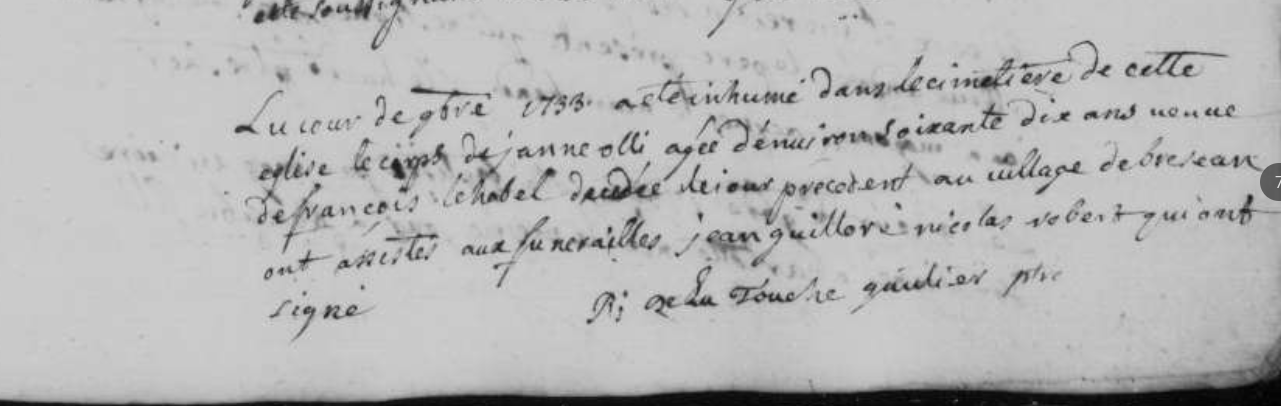 cette soussign
Lu jour de 9bre 1733 a eté inhumé dans le cimetiere de cette
eglise le corps de janne olli agée dénuiron soixante dix ans ueuue
de françois lehabel decedée le iour precedent au uillage de
ont assistés aux funerailles jean guilloré nicolas robert qui ont
signé
de La Touche gaulier ptre